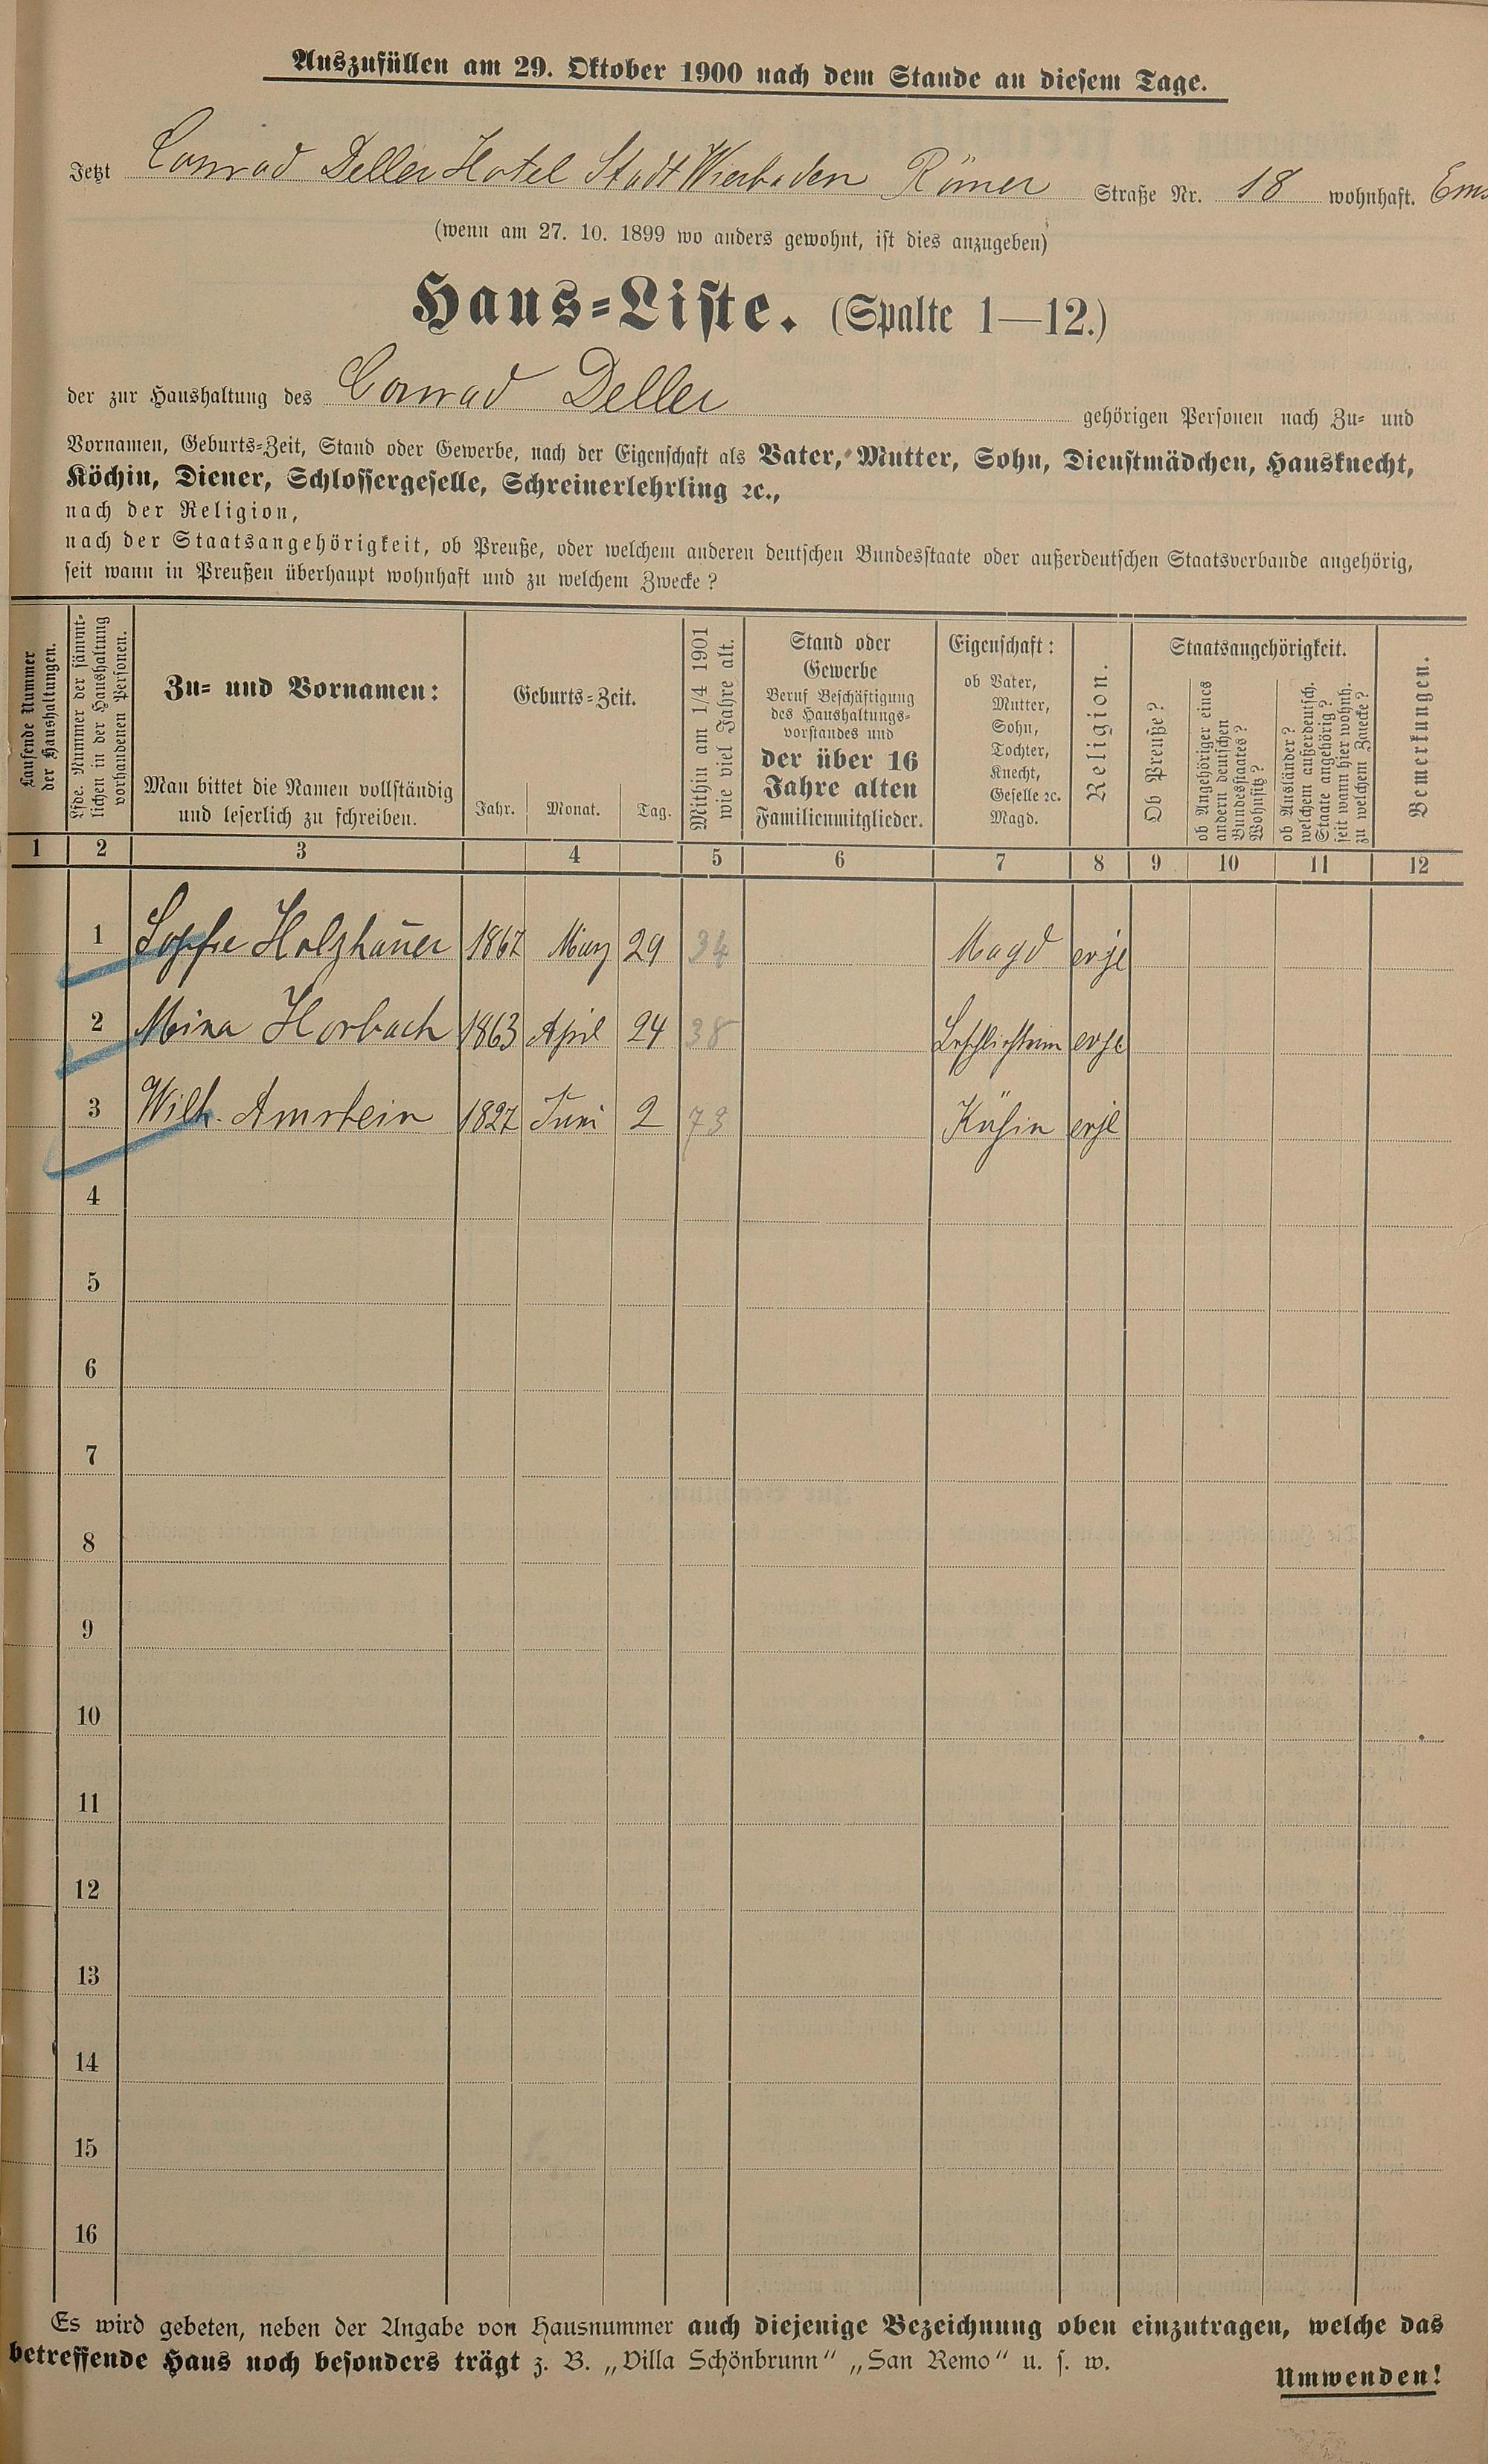 Auszufüllen am 29. Oktober 1900 nach dem Stande an diesem Tage.
Jetzt Conrad Deller Hotel Stadt Wiesbaden Römer Straße Nr. 18 wohnhaft. Ems
(wenn am 27. 10. 1899 wo anders gewohnt, ist dies anzugeben)
Haus-Liste. (Spalte 1—12.)
der zur Haushaltung des Conrad Deller gehörigen Personen nach Zu- und
Vornamen, Geburts-Zeit, Stand oder Gewerbe, nach der Eigenschaft als Vater, Mutter, Sohn, Dienstmädchen, Hausknecht,
Köchin, Diener, Schlossergeselle, Schreinerlehrling ꝛc.,
nach der Religion,
nach der Staatsangehörigkeit, ob Preuße, oder welchem anderen deutschen Bundesstaate oder außerdeutschen Staatsverbande angehörig,
seit wann in Preußen überhaupt wohnhaft und zu welchem Zwecke?
Laufende Nummer
der Haushaltungen.
Lfde. Nummer der sämmt-
lichen in der Haushaltung
vorhandenen Personen.
Zu- und Vornamen:
Man bittet die Namen vollständig
und leserlich zu schreiben.
Geburts-Zeit.
Jahr. Monat. Tag.
Mithin am 1/4 1901
wie viel Jahre alt.
Stand oder
Gewerbe
Beruf Beschäftigung
des Haushaltungs-
vorstandes und
der über 16
Jahre alten
Familienmitglieder.
Eigenschaft:
ob Vater,
Mutter,
Sohn,
Tochter,
Knecht,
Geselle ꝛc.
Magd.
Religion.
Staatsangehörigkeit.
Ob Preuße?
ob Angehöriger eines
andern deutschen
Bundesstaates?
Wohnsitz?
ob Ausländer?
welchem außerdeutsch.
Staate angehörig?
seit wann hier wohnh.
zu welchem Zwecke?
Bemerkungen.
1 2 3 4 5 6 7 8 9 10 11 12
1 Sophie Holzhauer 1867 März 29 34 Magd evgl
2 Mina Horbach 1863 April 24 38 evgl
3 Wilh. Amstein 1827 Juni 2 73 evgl
4
5
6
7
8
9
10
11
12
13
14
15
16
Es wird gebeten, neben der Angabe von Hausnummer auch diejenige Bezeichnung oben einzutragen, welche das
betreffende Haus noch besonders trägt z. B. „Villa Schönbrunn“ „San Remo“ u. s. w.
Umwenden!